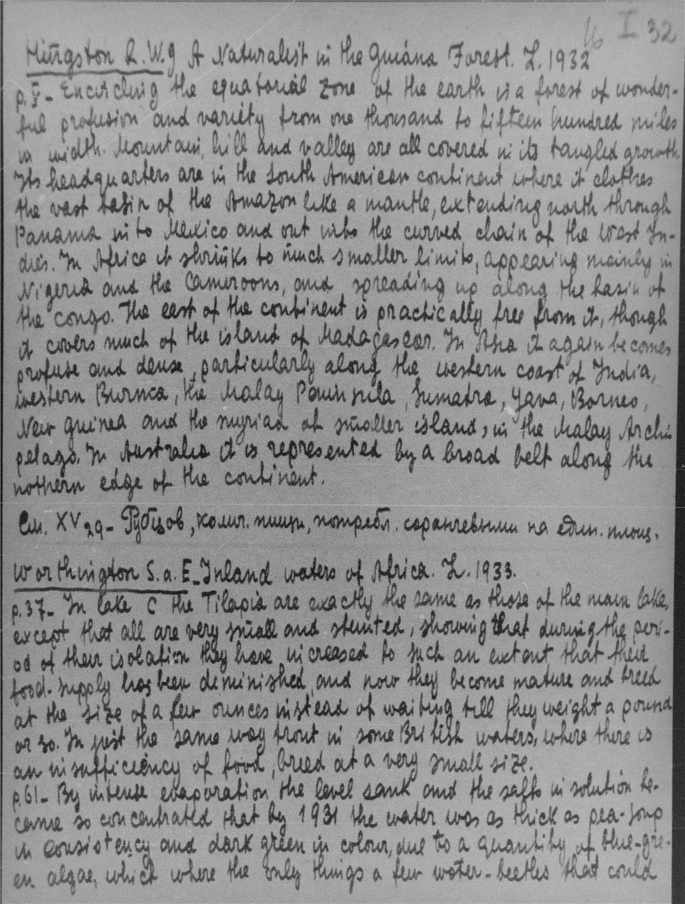 16 I 32
Hingston R.W.G A Naturalist in the Guiana Forest. L. 1932
p.V- Encircling the equatorial zone of the earth is a forest of wonder-
ful profusion and variety from one thousand to fifteen hundred miles
in width. Mountain, hill and valley are all covered in its tangled growth
Its headquarters are in the South American continent where it clothes
the vast basin of the Amazon like a mantle, extending north through
Panama into Mexico and out into the curved chain of the West In-
dies. In Africa it shrinks to much smaller limits, appearing mainly in
Nigeria and the Cameroons, and spreading up along the basin of
the Congo. The east of the continent is practically free from it, though
it covers much of the island of Madagascar. In Asia it again becomes
profuse and dense, particularly along the western coast of India,
western Burma, the Malay Peninsula, Sumatra, Java, Borneo,
New Guinea and the myriad of smaller islands in the Malay Archi
pelago. In Australia it is represented by a broad belt along the
nothern edge of the continent.
См. XV 29- Рубцов, колич. пищи, потребл. саранчевыми на един. площ.
Worthington S. a. E_Inland waters of Africa. L. 1933.
p.37- In lake C the Tilapia are exactly the same as those of the main lake,
except that all are very small and stunted, showing that during the peri-
od of their isolation they have increased to such an extent that their
food-supply has been deminished, and now they become mature and breed
at the size of a few ounces instead of waiting till they weight a pound
or so. In just the same way trout in some British waters, where there is
an insufficiency of food, breed at a very small size.
p.61- By intense evaporation the level sank and the salts in solution be-
came so concentrated that by 1931 the water was as thick as pea-soup
in consistency and dark green in colour, due to a quantity of blue-gre-
en algae, which where the only things a few water-beetles that could